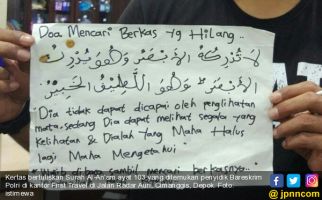 Doa Mencari Berkas yg Hilang..
لَا تُدْرِكُهُ الْأَبْصَرُ وَهُوَ يُدْرِكُ
الْأَبْصَرَ وَهُوَ اللَّطِيْفُ الْخَبِيْرُ
"Dia tidak dapat dicapai oleh penglihatan
mata, sedang Dia dapat melihat segala yang
Kelihatan & Dialah Yang Maha Halus
lagi Maha Mengetahui"
sambil mencari berkasnya..
Kertas bertuliskan Surah Al-An'am ayat 103 yang ditemukan penyidik Bareskrim
Polri di kantor First Travel di Jalan Radar Auri, Cimanggis, Depok. Foto:
istimewa
jpnn.com